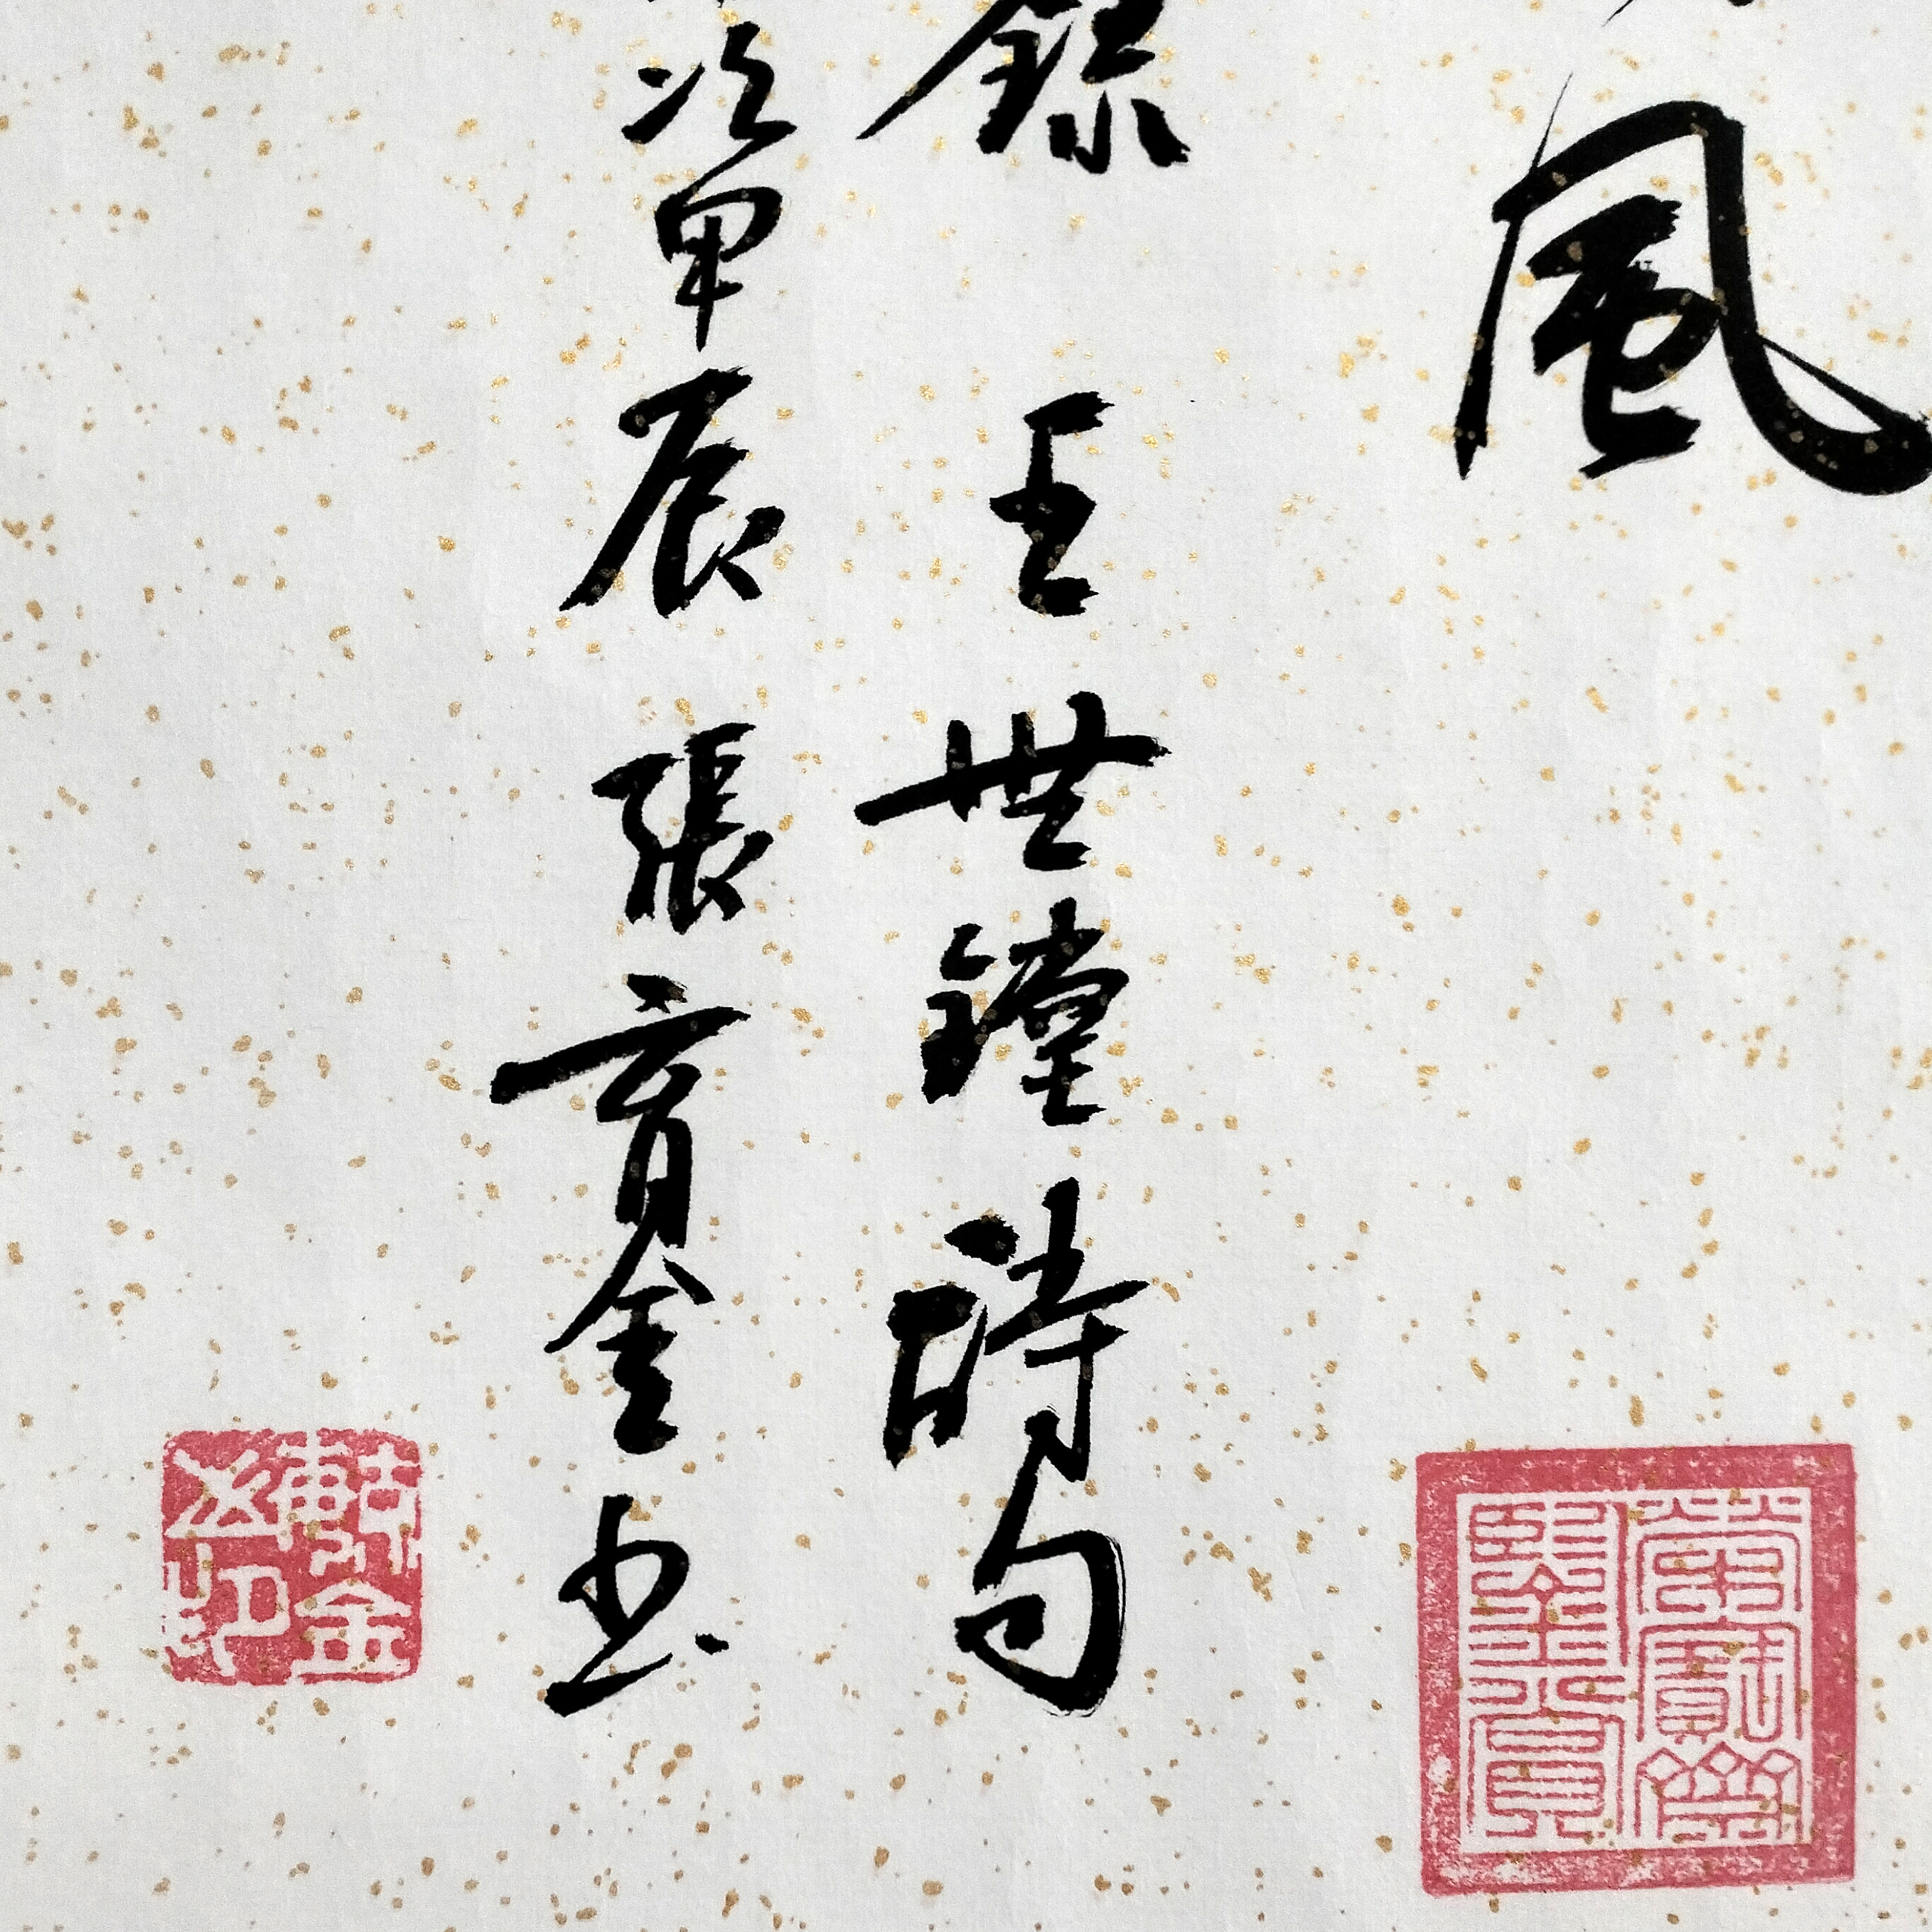 風
錄 王世鏜詩句
次甲辰 張育金書
榮寶齋